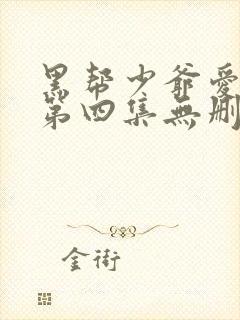 黑帮少爺愛
第四集無刪
金街